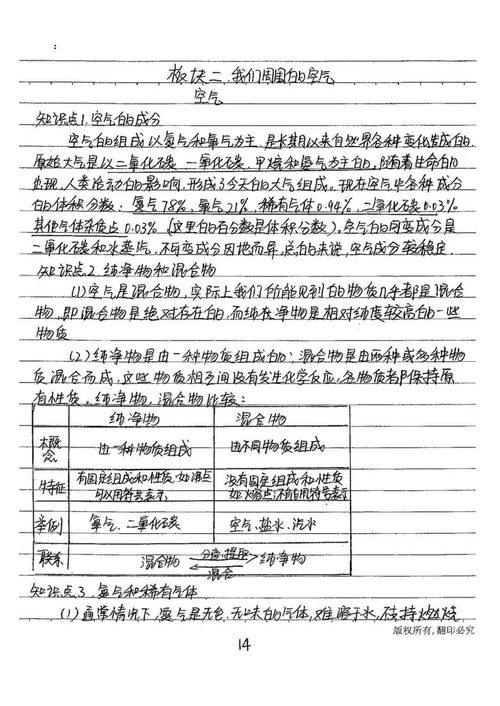 板块二、我们周围的空气
空气
知识点1.空气的成分
空气的组成以氮气和氧气为主,是长期以来自然界各种变化造成的。
原始大气是以二氧化碳、一氧化碳、甲烷和氨气为主的。随着生命的
出现,人类活动的影响,形成了今天的大气组成。现在空气中各种成分
的体积分数:氮气78%,氧气21%,稀有气体0.94%,二氧化碳0.03%
其他气体杂质占0.03%(这里的百分数是体积分数)。空气的可变成分是
二氧化碳和水蒸汽,不可变成分因地而异。总的来说,空气成分较稳定.
知识点2.纯净物和混合物
(1)空气是混合物,实际上我们所能见到的物质几乎都是混合
物,即混合物是绝对存在的,而纯净物是相对纯度较高的一些
物质
(2)纯净物是由一种物质组成的;混合物是由两种或多种物
质混合而成,这些物质相互间没有发生化学反应,各物质者都保持原
有性质。纯净物,混合物比较:
纯净物 混合物
概念 由一种物质组成 由不同物质组成
特征 有固定组成和性质,如沸点可以用符号表示 没有固定组成和性质如火熔点还有自用符号表示
举例 氧气、二氧化碳 空气、盐水、汽水
联系 混合物 分离、提取 纯净物
混合
知识点3.氮气和稀有气体
(1)通常情况下,氮气是无色、无味的气体,难溶于水,不支持燃烧
版权所有,翻印必究
14